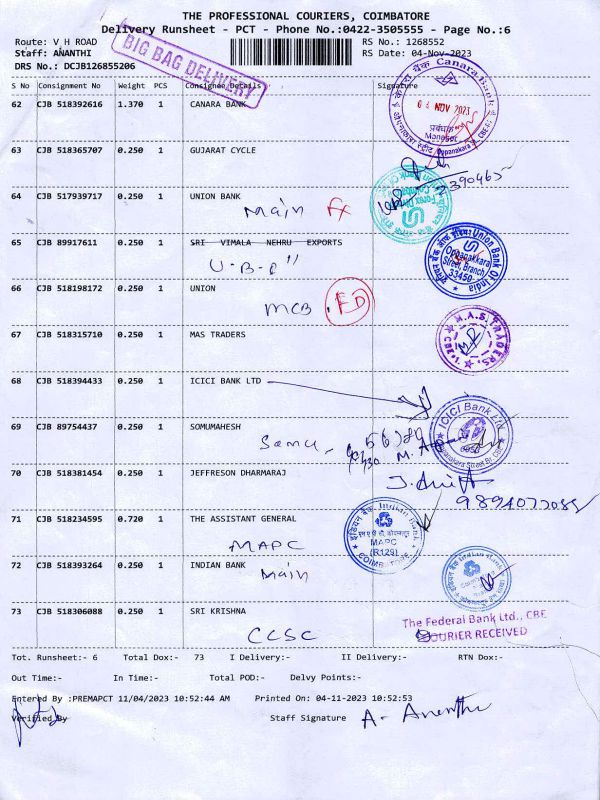 THE PROFESSIONAL COURIERS, COIMBATORE
Delivery Runsheet - PCT - Phone No.:0422-3505555 - Page No.:6
Route: V H ROAD RS No.: 1268552
Staff: ANANTHI RS Date: 04-Nov-2023
DRS No.: DCJB126855206
BIG BAG DELIVERY
S No Consignment No Weight PCS Consignee Details Signature
62 CJB 518392616 1.370 1 CANARA BANK
Canara Bank
NOV 2023
प्रबंधक
Manager
63 CJB 518365707 0.250 1 GUJARAT CYCLE
64 CJB 517939717 0.250 1 UNION BANK
Main
65 CJB 89917611 0.250 1 SRI VIMALA NEHRU EXPORTS
U-B-I
Union Bank Of India
Oppanakkara
Street Branch
33450
66 CJB 518198172 0.250 1 UNION
MCB
67 CJB 518315710 0.250 1 MAS TRADERS
M.A.S. TRADERS,
CBE-1.
68 CJB 518394433 0.250 1 ICICI BANK LTD
ICICI Bank Ltd.
69 CJB 89754437 0.250 1 SOMUMAHESH
Somu
70 CJB 518381454 0.250 1 JEFFRESON DHARMARAJ
71 CJB 518234595 0.720 1 THE ASSISTANT GENERAL
MAPC
इंडियन बैंक Indian Bank
MAPC
(R129)
COIMBATORE
72 CJB 518393264 0.250 1 INDIAN BANK
Main
73 CJB 518306088 0.250 1 SRI KRISHNA
CCSC
The Federal Bank Ltd., CBE
COURIER RECEIVED
Tot. Runsheet:- 6 Total Dox:- 73 I Delivery:- II Delivery:- RTN Dox:-
Out Time:- In Time:- Total POD:- Delvy Points:-
Entered By :PREMAPCT 11/04/2023 10:52:44 AM Printed On: 04-11-2023 10:52:53
Verified By Staff Signature A. Ananthi